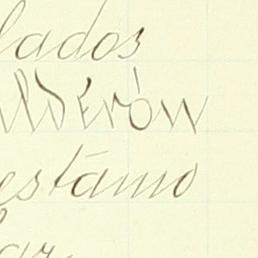 lados
alderón
estámo
ar